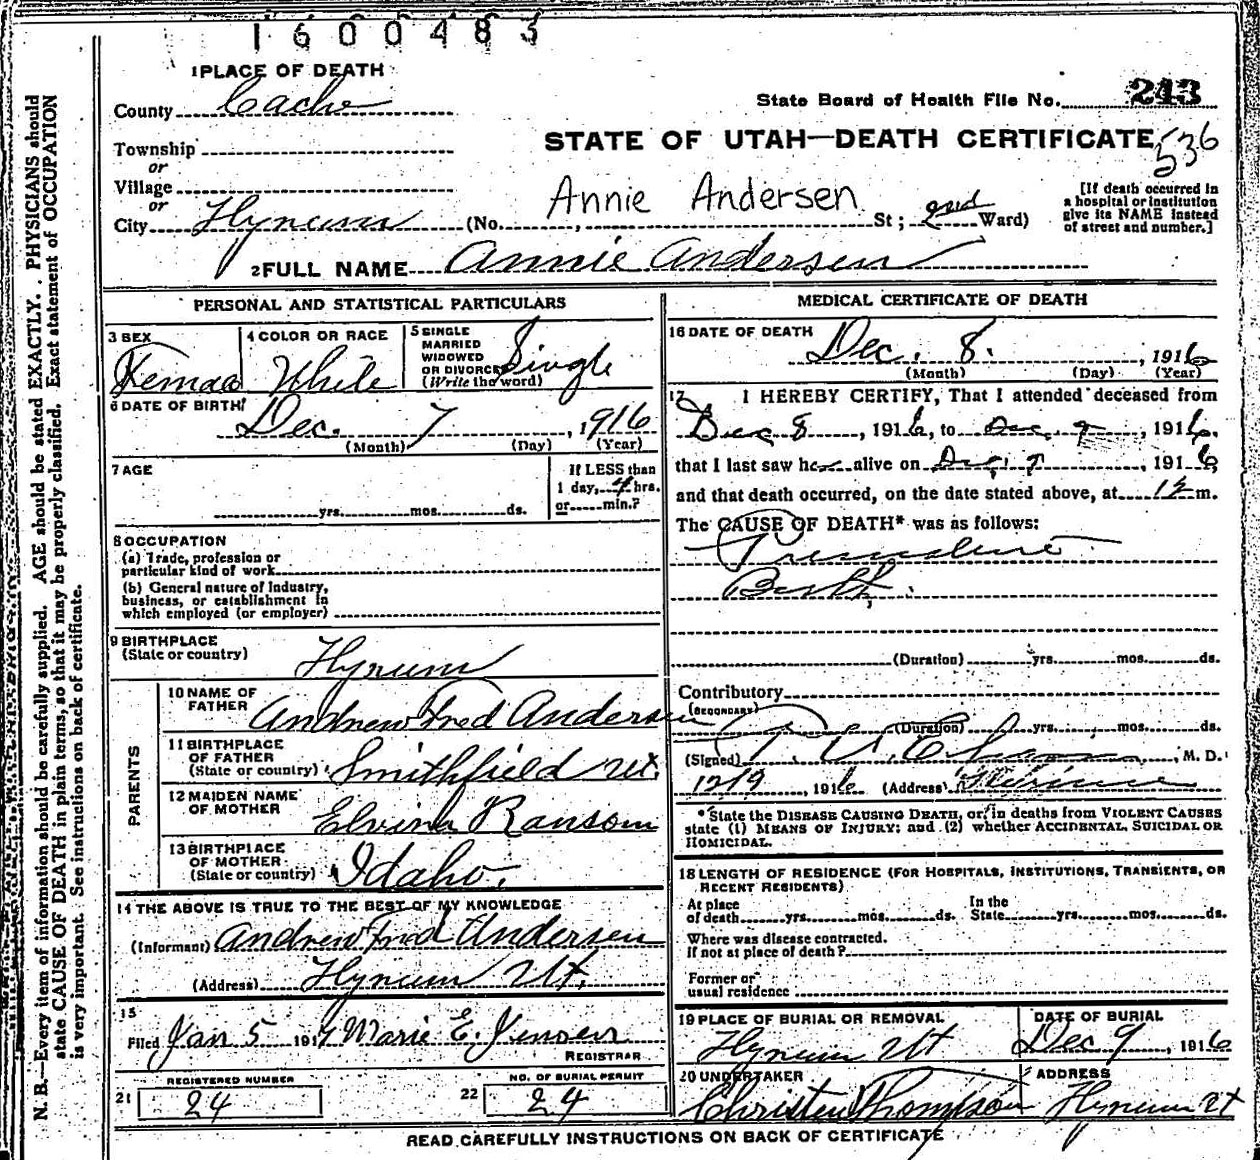 1600483
1 PLACE OF DEATH
County Cache
State Board of Health File No. 243
STATE OF UTAH—DEATH CERTIFICATE
536
Township
or
Village
or
City Hyrum (No. , St; 2nd Ward)
Annie Andersen
[If death occurred in
a hospital or institution
give its NAME instead
of street and number.]
2 FULL NAME Annie Andersen
PERSONAL AND STATISTICAL PARTICULARS
3 SEX
Female
4 COLOR OR RACE
White
5 SINGLE
MARRIED
WIDOWED
OR DIVORCED
(Write the word)
Single
6 DATE OF BIRTH
Dec. 7, 1916
(Month) (Day) (Year)
7 AGE
yrs. mos. ds.
If LESS than
1 day, 4 hrs.
or min.?
8 OCCUPATION
(a) Trade, profession or
particular kind of work
(b) General nature of industry,
business, or establishment in
which employed (or employer)
9 BIRTHPLACE
(State or country)
Hyrum
PARENTS
10 NAME OF
FATHER
Andrew Fred Andersen
11 BIRTHPLACE
OF FATHER
(State or country) Smithfield Ut.
12 MAIDEN NAME
OF MOTHER
Elvina Ransom
13 BIRTHPLACE
OF MOTHER
(State or country) Idaho.
14 THE ABOVE IS TRUE TO THE BEST OF MY KNOWLEDGE
(Informant) Andrew Fred Andersen
(Address) Hyrum Ut.
15
Filed Jan 5 1917 Marie E. Jensen
REGISTRAR
REGISTERED NUMBER
21 24
NO. OF BURIAL PERMIT
22 24
MEDICAL CERTIFICATE OF DEATH
16 DATE OF DEATH
Dec. 8. , 1916
(Month) (Day) (Year)
17 I HEREBY CERTIFY, That I attended deceased from
Dec 8 , 1916, to Dec. 9 , 1916.
that I last saw her alive on , 1916,
and that death occurred, on the date stated above, at 12 m.
The CAUSE OF DEATH* was as follows:
Premature
Birth.
(Duration) yrs. mos. ds.
Contributory
(SECONDARY)
(Duration) yrs. mos. ds.
(Signed) , M. D.
12/9 , 1916 (Address) Hyrum
*State the DISEASE CAUSING DEATH, or, in deaths from VIOLENT CAUSES
state (1) MEANS OF INJURY; and (2) whether ACCIDENTAL, SUICIDAL OR
HOMICIDAL.
18 LENGTH OF RESIDENCE (FOR HOSPITALS, INSTITUTIONS, TRANSIENTS, OR
RECENT RESIDENTS)
At place
of death yrs. mos. ds.
In the
State yrs. mos. ds.
Where was disease contracted.
if not at place of death?
Former or
usual residence
19 PLACE OF BURIAL OR REMOVAL
Hyrum Ut
DATE OF BURIAL
Dec 9, 1916
20 UNDERTAKER
Christen Thompson
ADDRESS
Hyrum Ut
READ CAREFULLY INSTRUCTIONS ON BACK OF CERTIFICATE
N. B.—Every item of information should be carefully supplied. AGE should be stated EXACTLY. PHYSICIANS should
state CAUSE OF DEATH in plain terms, so that it may be properly classified. Exact statement of OCCUPATION
is very important. See instructions on back of certificate.